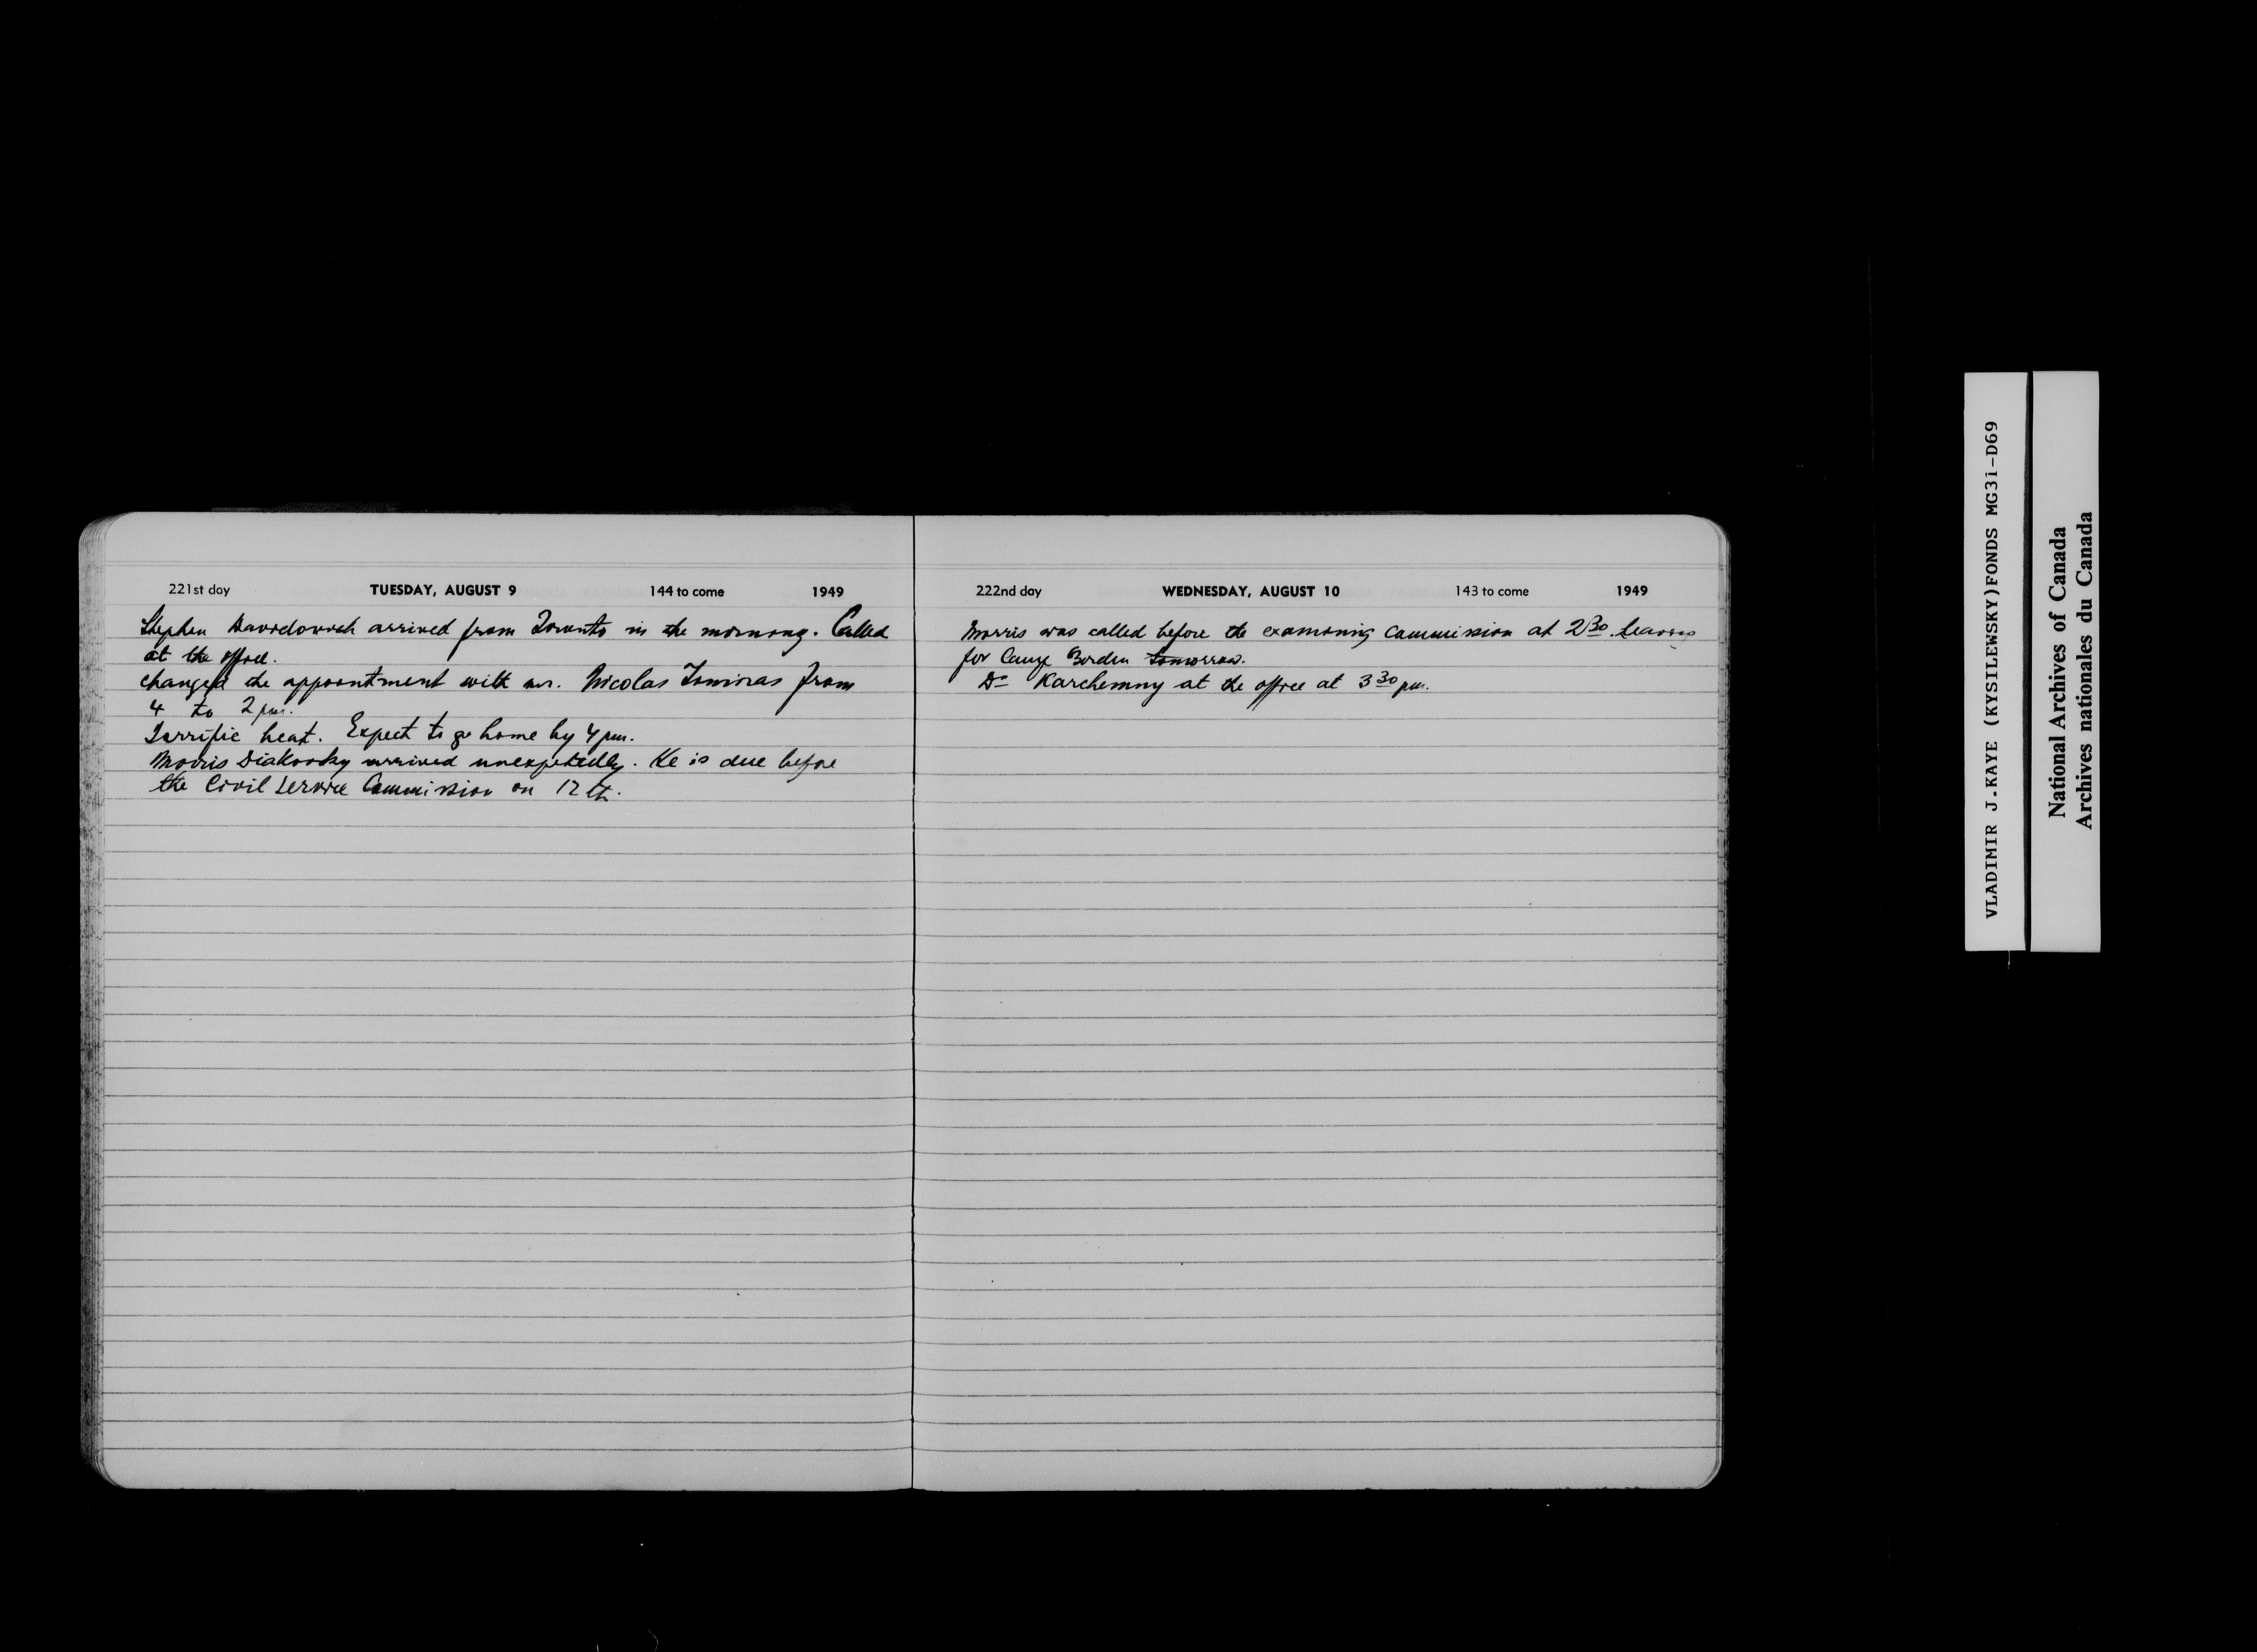 221st day TUESDAY, AUGUST 9 144 to come 1949
Stephen Davidovich arrived from Toronto in the morning. Called
at the office.
changed the appointment with mr. Nicolas from
4 to 2 pm.
Terrific heat. Expect to go home by 4 pm.
Morris Diakovsky arrived unexpetedly. He is due before
the Civil Service Commission on 12th.
222nd day WEDNESDAY, AUGUST 10 143 to come 1949
Morris was called before the examining Commission at 2 30. Leaves
for Camp Borden tomorrow.
Dr Karchemny at the office at 3 30 pm.
VLADIMIR J.KAYE (KYSILEWSKY)FONDS MG31-D69
National Archives of Canada
Archives nationales du Canada